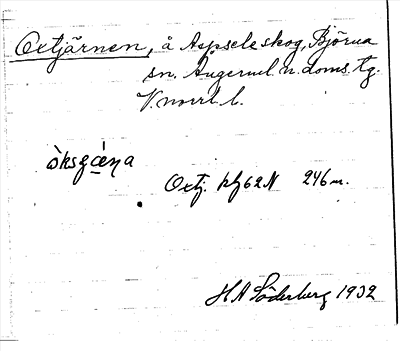 Oxtjärnen, å Aspsele skog, Björna
sn. Ångerml. n. doms. tg.
V.norrl. l.
òksɟæ̀ṇa
Oxtj. kbl 62 N 246 m.
H A Söderberg 1932